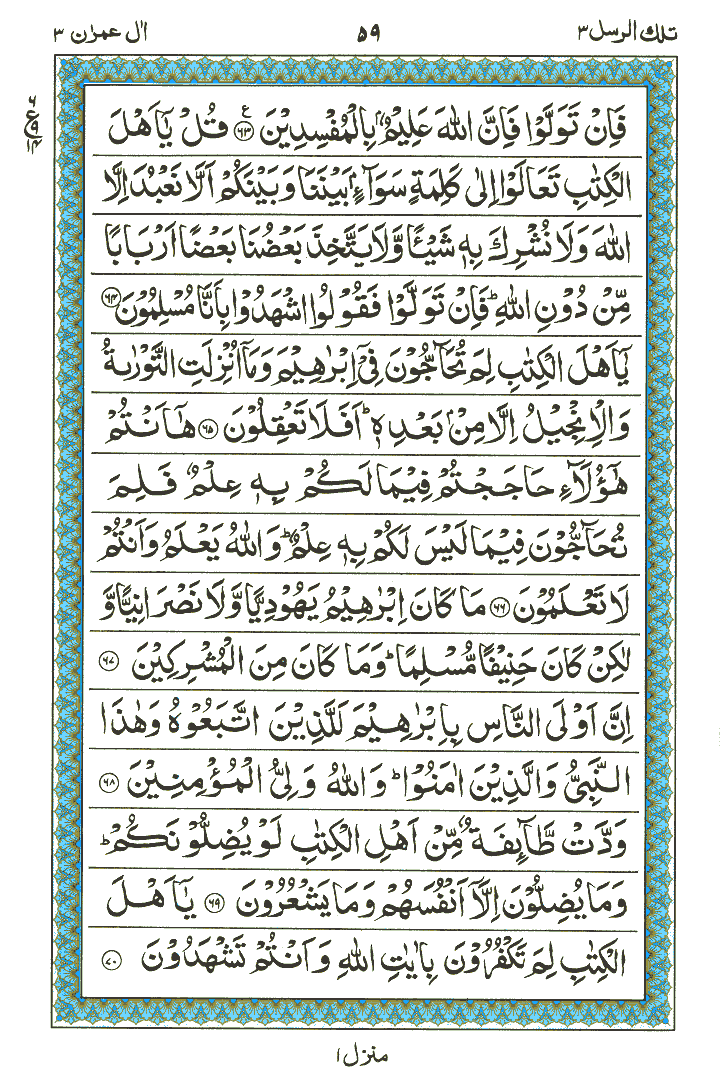 تلك الرسل ٣ ٥٩ اٰل عمرٰن ٣
ع ٦ ٩ ١٤
فَاِنْ تَوَلَّوْا فَاِنَّ اللّٰهَ عَلِيْمٌۢ بِالْمُفْسِدِيْنَ ﴿٦٣﴾ ع قُلْ يٰۤاَهْلَ
الْكِتٰبِ تَعَالَوْا اِلٰى كَلِمَةٍ سَوَآءٍۢ بَيْنَنَا وَبَيْنَكُمْ اَلَّا نَعْبُدَ اِلَّا
اللّٰهَ وَلَا نُشْرِكَ بِهٖ شَيْـًٔا وَّلَا يَتَّخِذَ بَعْضُنَا بَعْضًا اَرْبَابًا
مِّنْ دُوْنِ اللّٰهِ ؕ فَاِنْ تَوَلَّوْا فَقُوْلُوا اشْهَدُوْا بِاَنَّا مُسْلِمُوْنَ ﴿٦٤﴾
يٰۤاَهْلَ الْكِتٰبِ لِمَ تُحَآجُّوْنَ فِىْۤ اِبْرٰهِيْمَ وَمَاۤ اُنْزِلَتِ التَّوْرٰىةُ
وَالْاِنْجِيْلُ اِلَّا مِنْۢ بَعْدِهٖ ؕ اَفَلَا تَعْقِلُوْنَ ﴿٦٥﴾ هٰۤاَنْتُمْ
هٰٓؤُلَآءِ حَاجَجْتُمْ فِيْمَا لَكُمْ بِهٖ عِلْمٌ فَلِمَ
تُحَآجُّوْنَ فِيْمَا لَيْسَ لَكُمْ بِهٖ عِلْمٌ ؕ وَاللّٰهُ يَعْلَمُ وَاَنْتُمْ
لَا تَعْلَمُوْنَ ﴿٦٦﴾ مَا كَانَ اِبْرٰهِيْمُ يَهُوْدِيًّا وَّلَا نَصْرَانِيًّا وَّ
لٰكِنْ كَانَ حَنِيْفًا مُّسْلِمًا ؕ وَمَا كَانَ مِنَ الْمُشْرِكِيْنَ ﴿٦٧﴾
اِنَّ اَوْلَى النَّاسِ بِاِبْرٰهِيْمَ لَلَّذِيْنَ اتَّبَعُوْهُ وَهٰذَا
النَّبِىُّ وَالَّذِيْنَ اٰمَنُوْا ؕ وَاللّٰهُ وَلِىُّ الْمُؤْمِنِيْنَ ﴿٦٨﴾
وَدَّتْ طَّآئِفَةٌ مِّنْ اَهْلِ الْكِتٰبِ لَوْ يُضِلُّوْنَكُمْ ؕ
وَمَا يُضِلُّوْنَ اِلَّاۤ اَنْفُسَهُمْ وَمَا يَشْعُرُوْنَ ﴿٦٩﴾ يٰۤاَهْلَ
الْكِتٰبِ لِمَ تَكْفُرُوْنَ بِاٰيٰتِ اللّٰهِ وَاَنْتُمْ تَشْهَدُوْنَ ﴿٧٠﴾
منزل ١